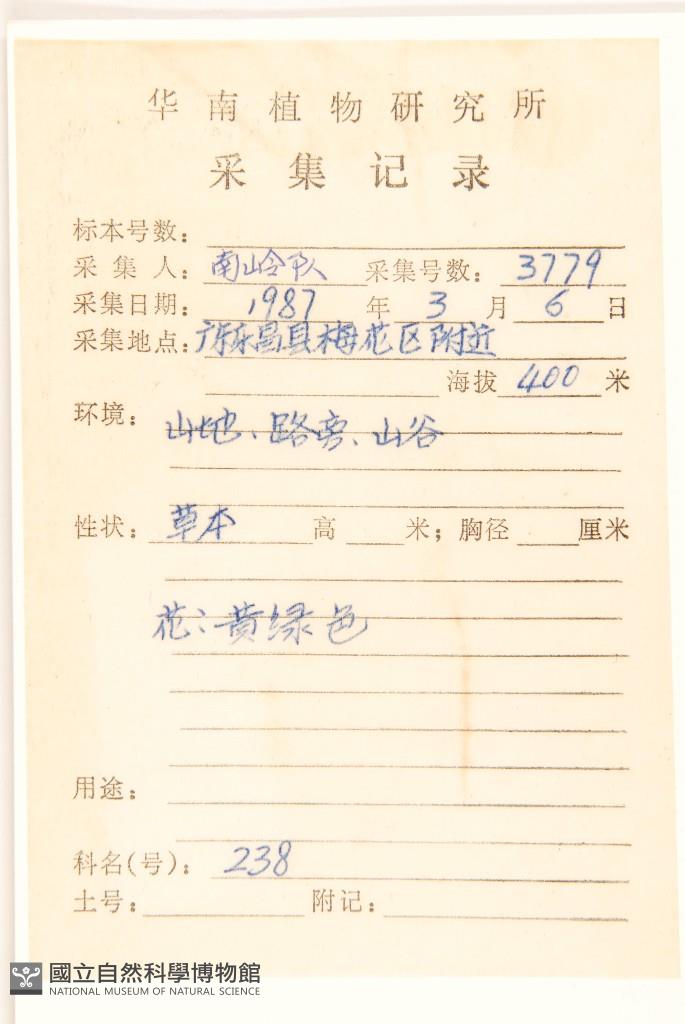 华南植物研究所
采集记录
标本号数：
采集人：南岭队 采集号数：3779
采集日期：1987年3月6日
采集地点：广东乐昌县梅花区附近
海拔400米
环境：山地、路旁、山谷
性状：草本 高 米；胸径 厘米
花：黄绿色
用途：
科名(号)：238
土号： 附记：
國立自然科學博物館
NATIONAL MUSEUM OF NATURAL SCIENCE